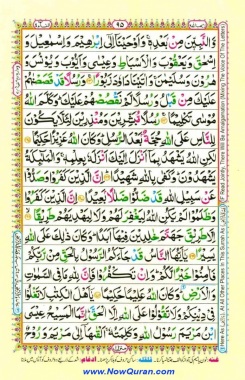 ٩٥
وَالنَّبِيّٖنَ مِنْۢ بَعْدِهٖ ۚ وَاَوْحَيْنَاۤ اِلٰۤى اِبْرٰهِيْمَ وَاِسْمٰعِيْلَ وَ
اِسْحٰقَ وَيَعْقُوْبَ وَالْاَسْبَاطِ وَعِيْسٰى وَاَيُّوْبَ وَيُوْنُسَ وَ
هٰرُوْنَ وَسُلَيْمٰنَ ۚ وَاٰتَيْنَا دَاوٗدَ زَبُوْرًا ۚ وَرُسُلًا قَدْ قَصَصْنٰهُمْ
عَلَيْكَ مِنْ قَبْلُ وَرُسُلًا لَّمْ نَقْصُصْهُمْ عَلَيْكَ ؕ وَكَلَّمَ اللّٰهُ
مُوْسٰى تَكْلِيْمًا ۚ رُسُلًا مُّبَشِّرِيْنَ وَمُنْذِرِيْنَ لِئَلَّا يَكُوْنَ
لِلنَّاسِ عَلَى اللّٰهِ حُجَّةٌۢ بَعْدَ الرُّسُلِ ؕ وَكَانَ اللّٰهُ عَزِيْزًا حَكِيْمًا
لٰكِنِ اللّٰهُ يَشْهَدُ بِمَاۤ اَنْزَلَ اِلَيْكَ اَنْزَلَهٗ بِعِلْمِهٖ ۚ وَالْمَلٰٓئِكَةُ
يَشْهَدُوْنَ ؕ وَكَفٰى بِاللّٰهِ شَهِيْدًا ؕ اِنَّ الَّذِيْنَ كَفَرُوْا وَصَدُّوْا
عَنْ سَبِيْلِ اللّٰهِ قَدْ ضَلُّوْا ضَلٰلًۢا بَعِيْدًا اِنَّ الَّذِيْنَ كَفَرُوْا
وَظَلَمُوْا لَمْ يَكُنِ اللّٰهُ لِيَغْفِرَ لَهُمْ وَلَا لِيَهْدِيَهُمْ طَرِيْقًا
اِلَّا طَرِيْقَ جَهَنَّمَ خٰلِدِيْنَ فِيْهَاۤ اَبَدًا ؕ وَكَانَ ذٰلِكَ عَلَى اللّٰهِ
يَسِيْرًا يٰۤاَيُّهَا النَّاسُ قَدْ جَآءَكُمُ الرَّسُوْلُ بِالْحَقِّ مِنْ رَّبِّكُمْ
فَاٰمِنُوْا خَيْرًا لَّكُمْ ؕ وَاِنْ تَكْفُرُوْا فَاِنَّ لِلّٰهِ مَا فِى السَّمٰوٰتِ
وَالْاَرْضِ ؕ وَكَانَ اللّٰهُ عَلِيْمًا حَكِيْمًا يٰۤاَهْلَ الْكِتٰبِ لَا تَغْلُوْا
فِىْ دِيْنِكُمْ وَلَا تَقُوْلُوْا عَلَى اللّٰهِ اِلَّا الْحَقَّ ؕ اِنَّمَا الْمَسِيْحُ عِيْسَى
ابْنُ مَرْيَمَ رَسُوْلُ اللّٰهِ وَكَلِمَتُهٗ ۚ اَلْقٰٮهَاۤ اِلٰى مَرْيَمَ وَرُوْحٌ
www.NowQuran.com